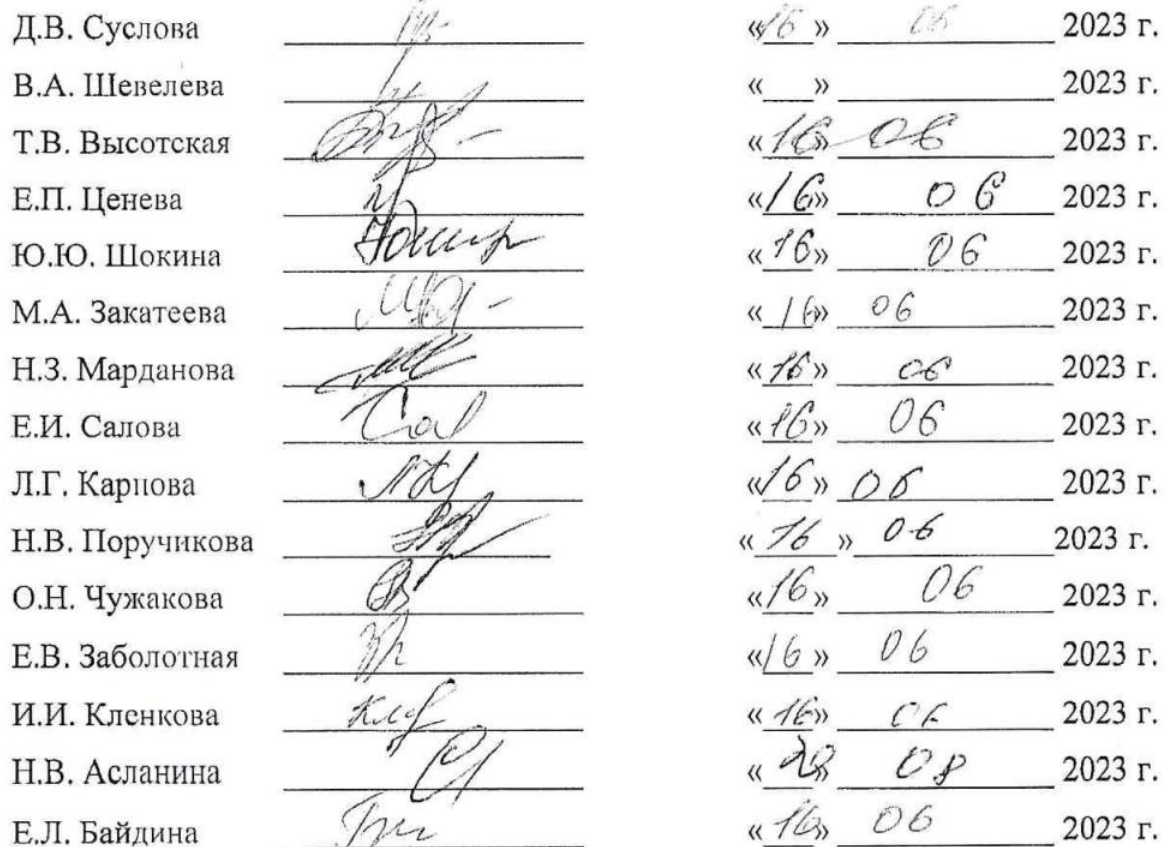 Д.В. Суслова «16» 06 2023 г.
В.А. Шевелева « » 2023 г.
Т.В. Высотская «16» 06 2023 г.
Е.П. Ценева «16» 06 2023 г.
Ю.Ю. Шокина «16» 06 2023 г.
М.А. Закатеева «16» 06 2023 г.
Н.З. Марданова «16» 06 2023 г.
Е.И. Салова Сал «16» 06 2023 г.
Л.Г. Карпова «16» 06 2023 г.
Н.В. Поручикова «16» 06 2023 г.
О.Н. Чужакова «16» 06 2023 г.
Е.В. Заболотная «16» 06 2023 г.
И.И. Кленкова «16» 06 2023 г.
Н.В. Асланина « » 08 2023 г.
Е.Л. Байдина «16» 06 2023 г.